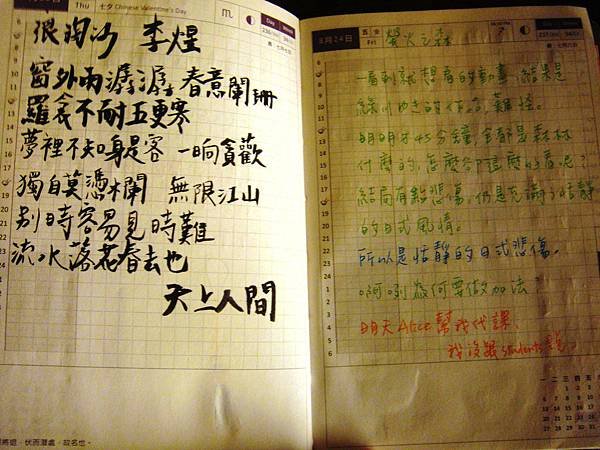 Thu 七夕 Chinese Valentine's Day
Day Week
浪淘沙 李煜
窗外雨潺潺 春意闌珊
羅衾不耐五更寒
夢裡不知身是客 一晌貪歡
獨自莫憑欄 無限江山
別時容易見時難
流水落花春去也
天上人間
將退,伏而潛處,故名也。
8月24日 五 Fri 螢火之森
Day Week
一看到就想看的動畫,結果是
綠川ゆき的作品,難怪。
明明才45分鐘,全都是森林
什麼的,怎麼會這麼好看呢?
結局有點悲傷,仍是充滿了恬靜
的日式風情。
所以是恬靜的日式悲傷。
啊咧為何要做加法?
明天Alice幫我代課,
我沒跟students說。